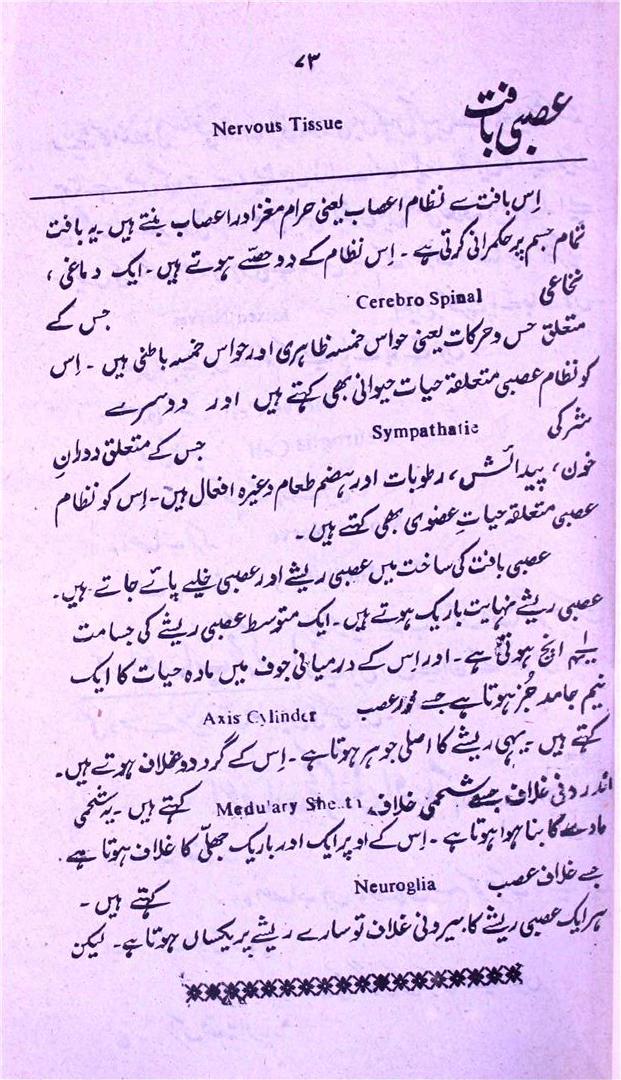 ۷۳
عصبی بافت Nervous Tissue
اِس بافت سے نظام اعصاب یعنی حرام مغز اور اعصاب بنتے ہیں۔ یہ بافت
تمام جسم پر حکمرانی کرتی ہے۔ اِس نظام کے دو حصّے ہوتے ہیں۔ ایک دماغی،
نخاعی Cerebro Spinal جس کے
متعلق حس و حرکات یعنی حواس خمسہ ظاہری اور حواس خمسہ باطنی ہیں۔ اِس
کو نظام عصبی متعلقہ حیات حیوانی بھی کہتے ہیں اور دوسرے
شرکی Sympathatic جس کے متعلق دورانِ
خون، پیدائش، رطوبات اور ہضم طعام وغیرہ افعال ہیں۔ اِس کو نظام
عصبی متعلقہ حیاتِ عضوی بھی کہتے ہیں۔
عصبی بافت کی ساخت میں عصبی ریشے اور عصبی خلیے پائے جاتے ہیں۔
عصبی ریشے نہایت باریک ہوتے ہیں۔ ایک متوسط عصبی ریشے کی جسامت
انچ ہوتی ہے۔ اور اِس کے درمیانی جوف میں مادہ حیات کا ایک
نیم جامد جُز ہوتا ہے جسے محور عصب Axis Cylinder
کہتے ہیں یہی ریشے کا اصلی جوہر ہوتا ہے۔ اِس کے گرد دو غلاف ہوتے ہیں۔
اندرونی غلاف جسے شحمی غلاف Medulary Sheeth کہتے ہیں۔ یہ شحمی
مادے کا بنا ہوا ہوتا ہے۔ اِس کے اوپر ایک اور باریک جھلّی کا غلاف ہوتا ہے
جسے غلاف عصب Neuroglia کہتے ہیں۔
ہر ایک عصبی ریشے کا بیرونی غلاف تو سارے ریشے پر یکساں ہوتا ہے۔ لیکن